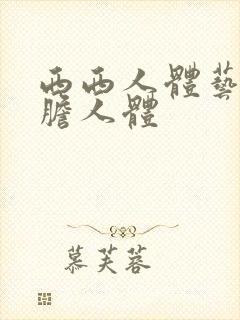 西西人體藝
膽人體
慕芙蓉